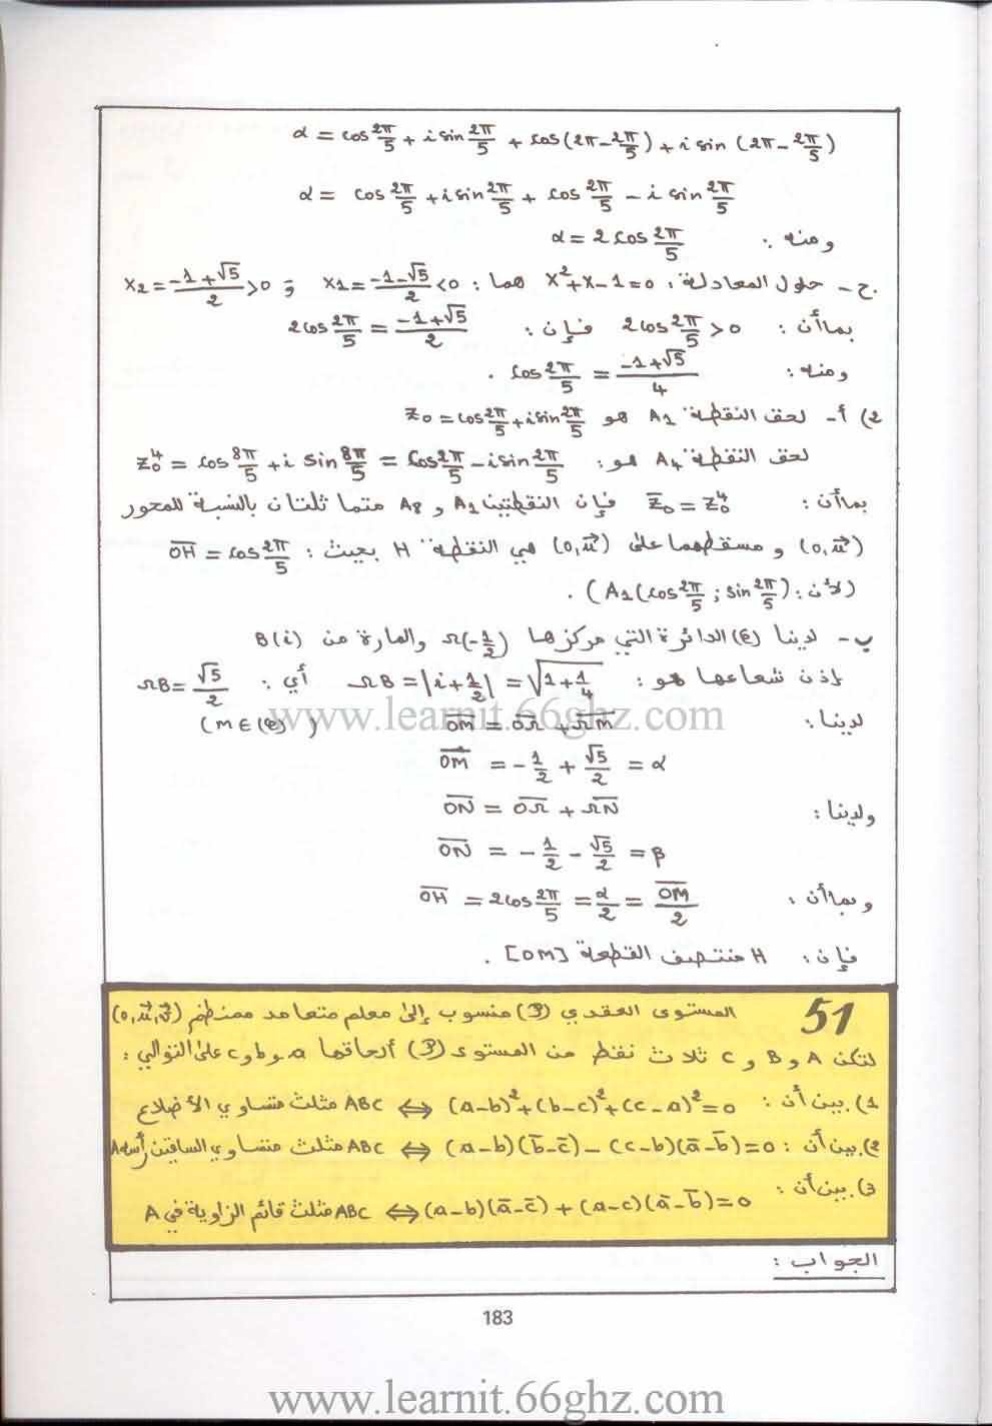 α = cos 2π/5 + i sin 2π/5 + cos(2π - 2π/5) + i sin (2π - 2π/5)
α = cos 2π/5 + i sin 2π/5 + cos 2π/5 - i sin 2π/5
ومنه : α = 2 cos 2π/5
ج - حلول المعادلة، x²+x-1=0 هما : x₁ = (-1-√5)/2 <0 و x₂ = (-1+√5)/2 >0
بما أن : 2cos 2π/5 >0 فإن : 2cos 2π/5 = (-1+√5)/2
ومنه : cos 2π/5 = (-1+√5)/4 .
2) أ- لحق النقطة A₁ هو z₀ = cos 2π/5 + i sin 2π/5
لحق النقطة A₄ هو : z₀⁴ = cos 8π/5 + i sin 8π/5 = cos 2π/5 - i sin 2π/5
بما أن : z̄₀ = z₀⁴ فإن النقطتين A₁ و A₈ متماثلتان بالنسبة للمحور
(o,u⃗) و مسقطهما على (o,u⃗) هي النقطة H بحيث : O̅H̅ = cos 2π/5
(لأن : A₁(cos 2π/5 ; sin 2π/5)) .
ب - لدينا (C) الدائرة التي مركزها Ω(-1/2) والمارة من B(i)
إذن شعاعها هو : ΩB = |i + 1/2| = √(1+1/4) أي : ΩB = √5/2
لدينا : O̅M̅ = O̅Ω̅ + Ω̅M̅ (M ∈ (C))
O̅M̅ = -1/2 + √5/2 = α
ولدينا : O̅N̅ = O̅Ω̅ + Ω̅N̅
O̅N̅ = -1/2 - √5/2 = β
وبما أن : O̅H̅ = 2cos 2π/5 = α/2 = O̅M̅/2
فإن : H منتصف القطعة [OM] .
51 المستوى العقدي (P) منسوب إلى معلم متعامد ممنظم (o,u⃗,v⃗)
لتكن A و B و C ثلاث نقط من المستوى (P) ألحاقها a و b و c على التوالي :
1) بين أن : (a-b)²+(b-c)²+(c-a)²=0 ⇔ ABC مثلث متساوي الأضلاع
2) بين أن : (a-b)(b̄-c̄) - (c-b)(ā-b̄)=0 ⇔ ABC مثلث متساوي الساقين رأسه A
3) بين أن :
(a-b)(ā-c̄) + (a-c)(ā-b̄)=0 ⇔ ABC مثلث قائم الزاوية في A
الجواب :
183
www.learnit.66ghz.com
www.learnit.66ghz.com